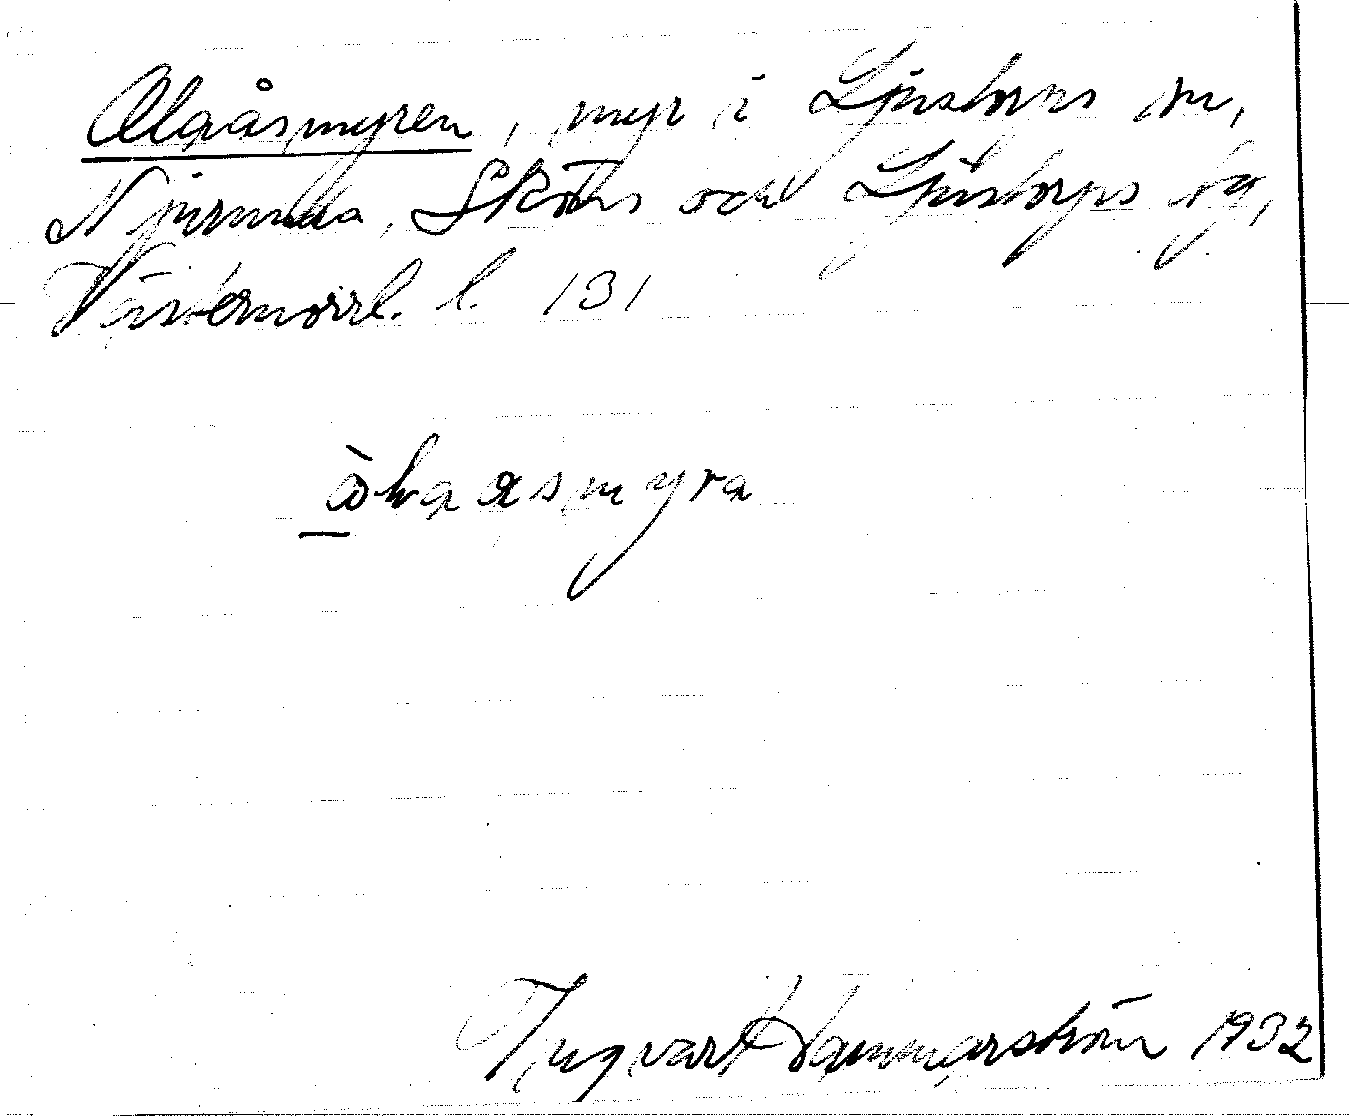 Olaåsmyren, myr i Ljustorps sn,
Njurunda, Sköns och Ljustorps tg,
Västernorrl. l. 131
Ingvart Hammarström 1932